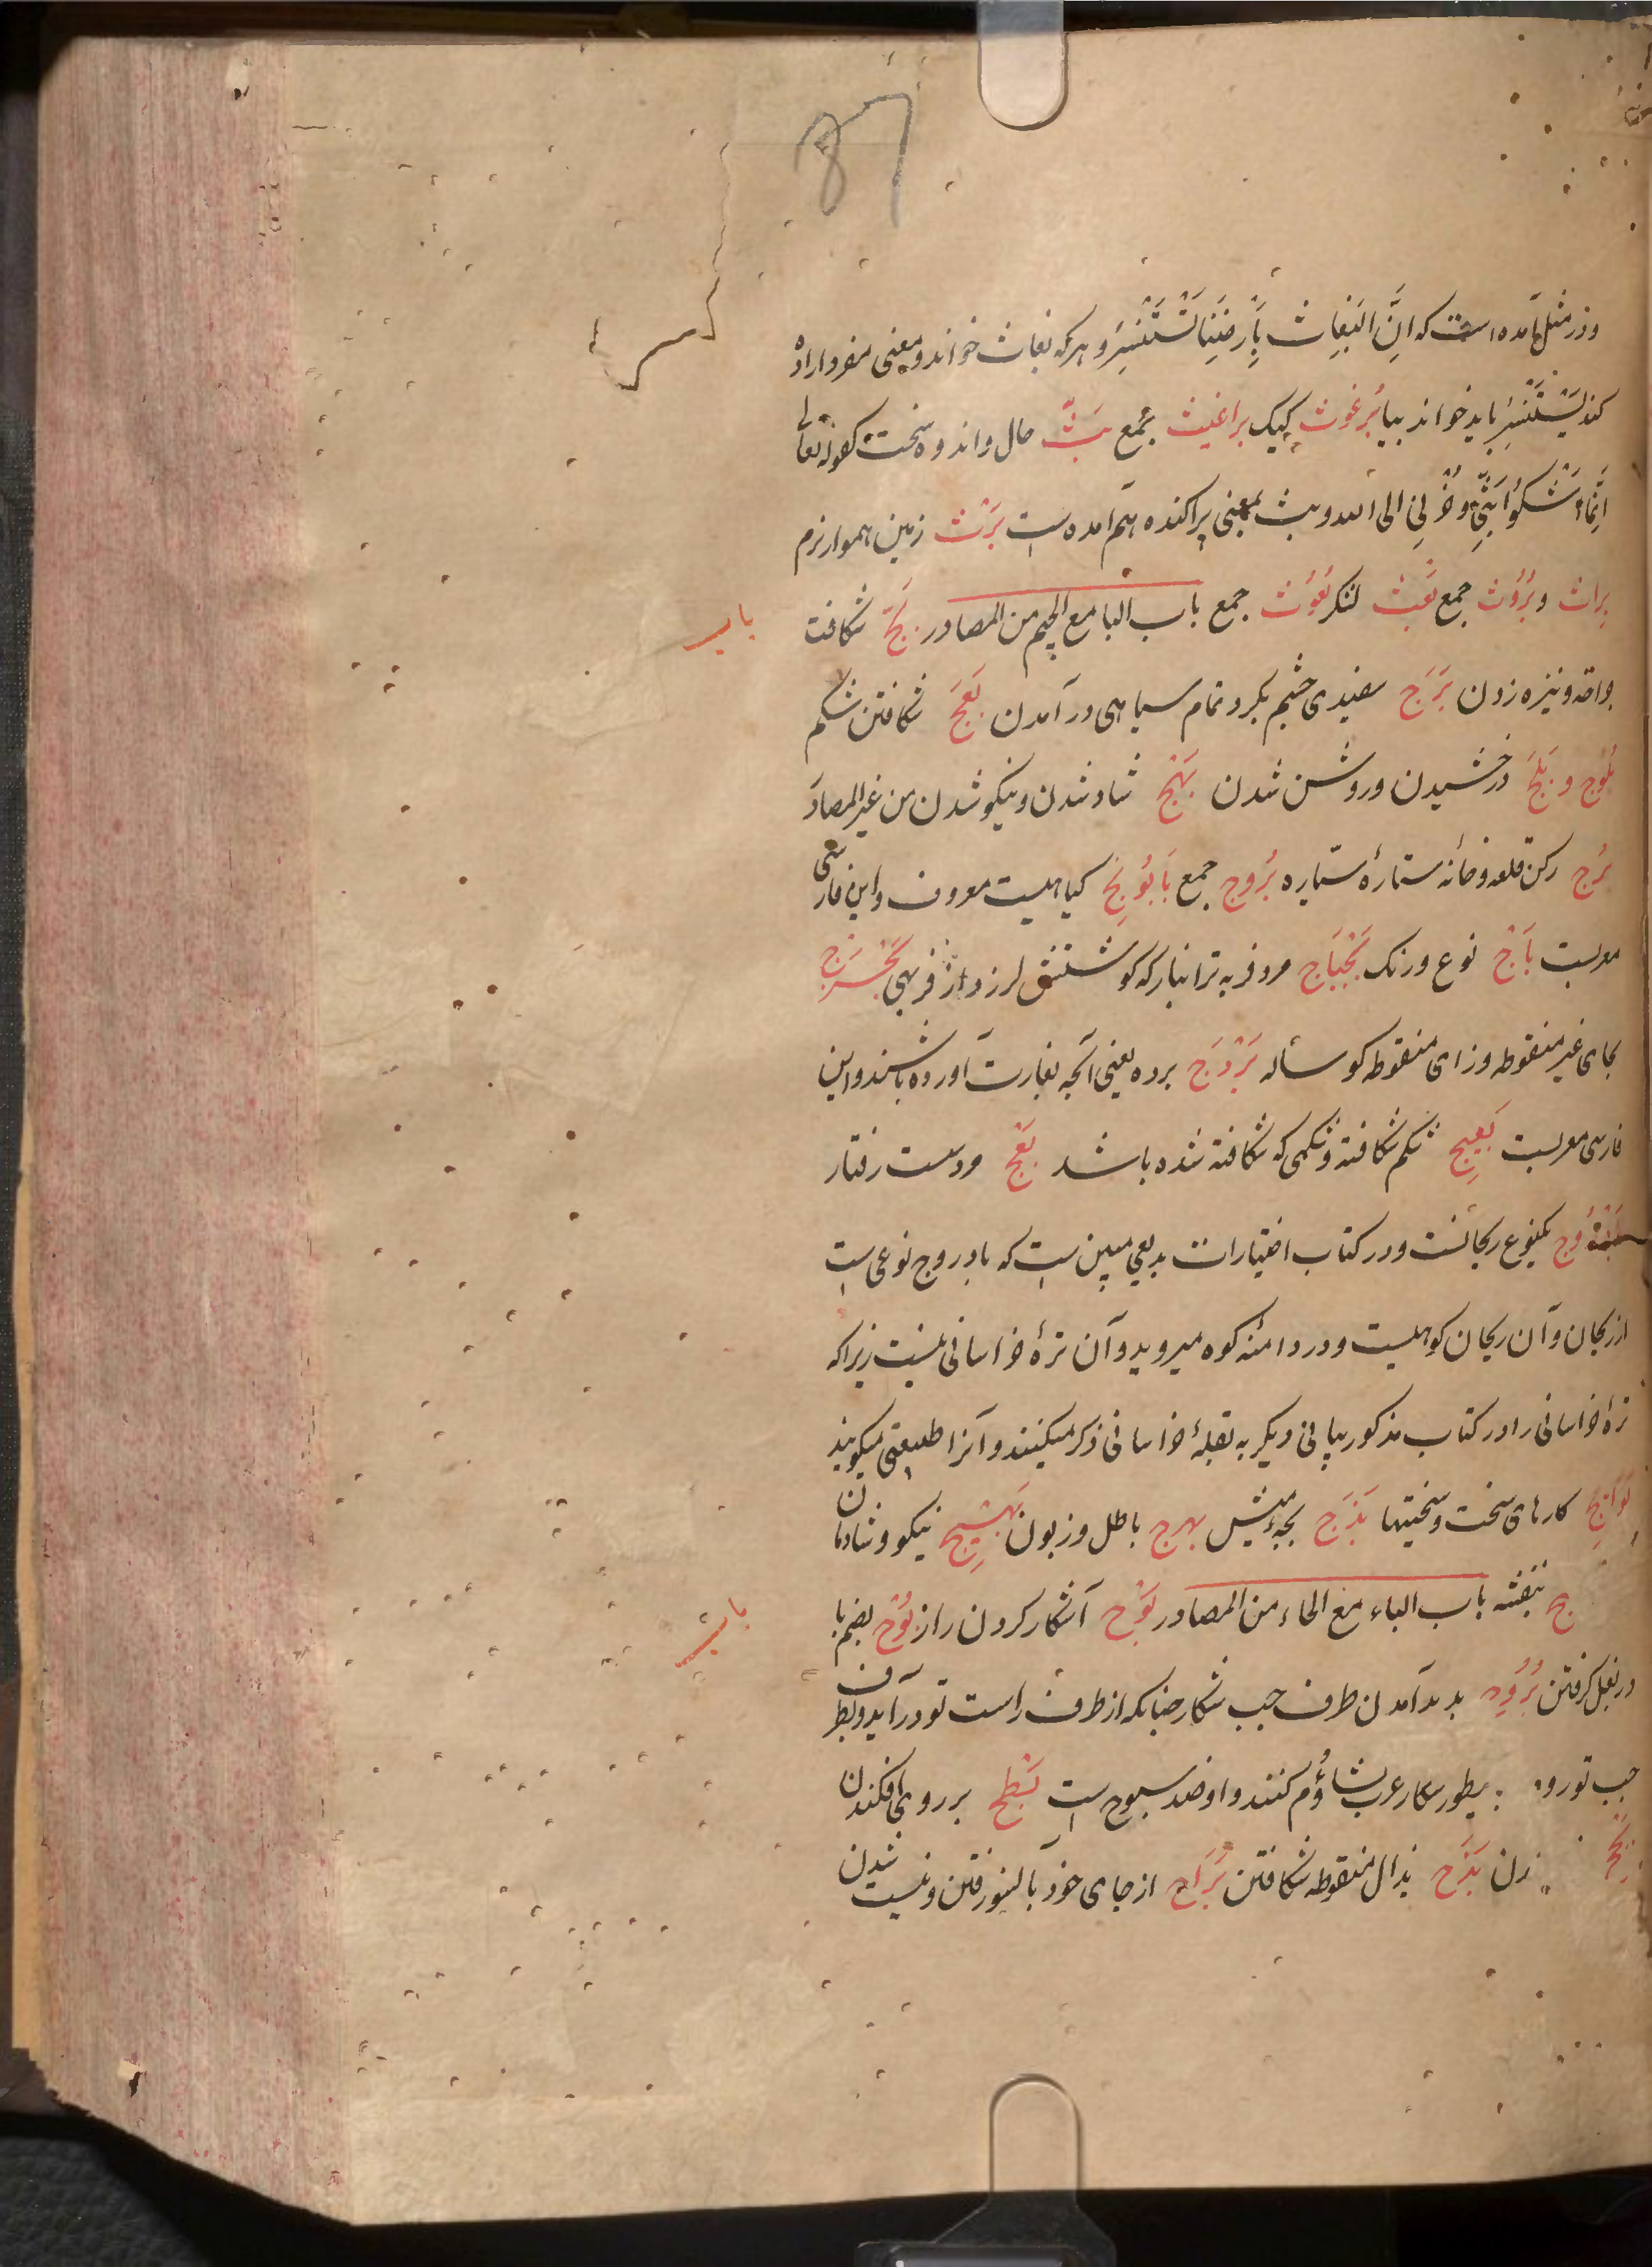 87
ودر مثل آمده است که اِنَّ البَغاثَ بِاَرضِنا تَستَنسِرُ و هرکه بغاث خواند و معنی مفرد اراده
کند یَستَنسِرُ باید خواند بیا بُرغوث کیک براغیث جمع بَثّ حال و اندوه سخت کقوله تعالی
اِنَّما اَشکُوا بَثِّی وَ حُزنِی الی الله و بث بمعنی پراکنده هم آمده است بَرث زمین هموار نرم
بِراث و بُرُوث جمع بَعث لشکر بُعُوث جمع باب البا مع الجیم من المصادر بَجّ شکافتن
باب
جراحة و نیزه زدن بَرَج سفیدی چشم بکرد تمام سیاهی در آمدن بَعج شکافتن شکم
بُلُوج و بَلَج درخشیدن و روشن شدن بَهَج شاد شدن و نیکو شدن من غیر المصادر
بُرج رکن قلعه و خانه ستارهٔ سیّاره بُروج جمع بابُونِج کیاهیست معروف و این فارسی
معربست بَاج نوع و رنک بَجباج مرد فربه ترانبار که کوشتش لرزد از فربهی بَحزَج
بحای غیر منقوطه و زای منقوطه کوساله بَردَج برده یعنی آنچه بغارت آورده باشند و این
فارسی معربست بَعِیج شکم شکافته و شکمی که شکافته شده باشد بَعِج مرد سست رفتار
یکنوع ریحانست و در کتاب اختیارات بدیعی مبین است که بادروج نوعی است
از ریحان و آن ریحان کوهیست و در دامنه کوه میروید و آن ترهٔ خراسانی نیست زیرا که
ترهٔ خراسانی را در کتاب مذکور ببابی دیکر به بقلهٔ خراسانی ذکر میکنند و آنرا میکویند
بَوائج کارهای سخت و سختیها بَذَج بچهٔ میش بهرج باطل و زبون بَهِیج نیکو و شادمان
بنفشه باب الباء مع الحاء من المصادر بَوح آشکار کردن راز بُوح بضم با
باب
در بغل کرفتن بُرُوح بدید آمدن طرف چپ شکار چنانکه از طرف راست تو در آید و بطرف
چپ تو رود بطور شکار عرب تشاؤم کنند و او ضد سنوح است بَطح بر روی افکندن
زدن بَذح بذال منقوطه شکافتن بَرَاح از جای خود بآنسو رفتن و نیست شدن